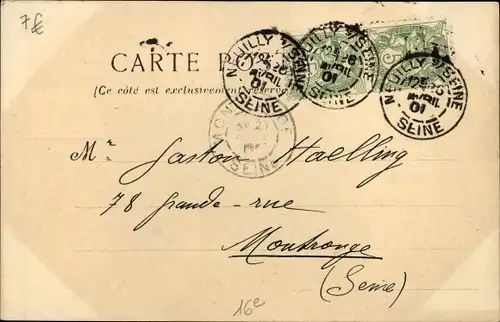 7€
CARTE P
(Ce côté est exclusivement réservé
NEUILLY S/SEINE
AVRIL
01
SEINE
NEUILLY S/SEINE
AVRIL
01
SEINE
NEUILLY S/SEINE
AVRIL
01
SEINE
SEINE
Mr Gaston Haelling
78 grande-rue
Montrouge
(Seine)
16e